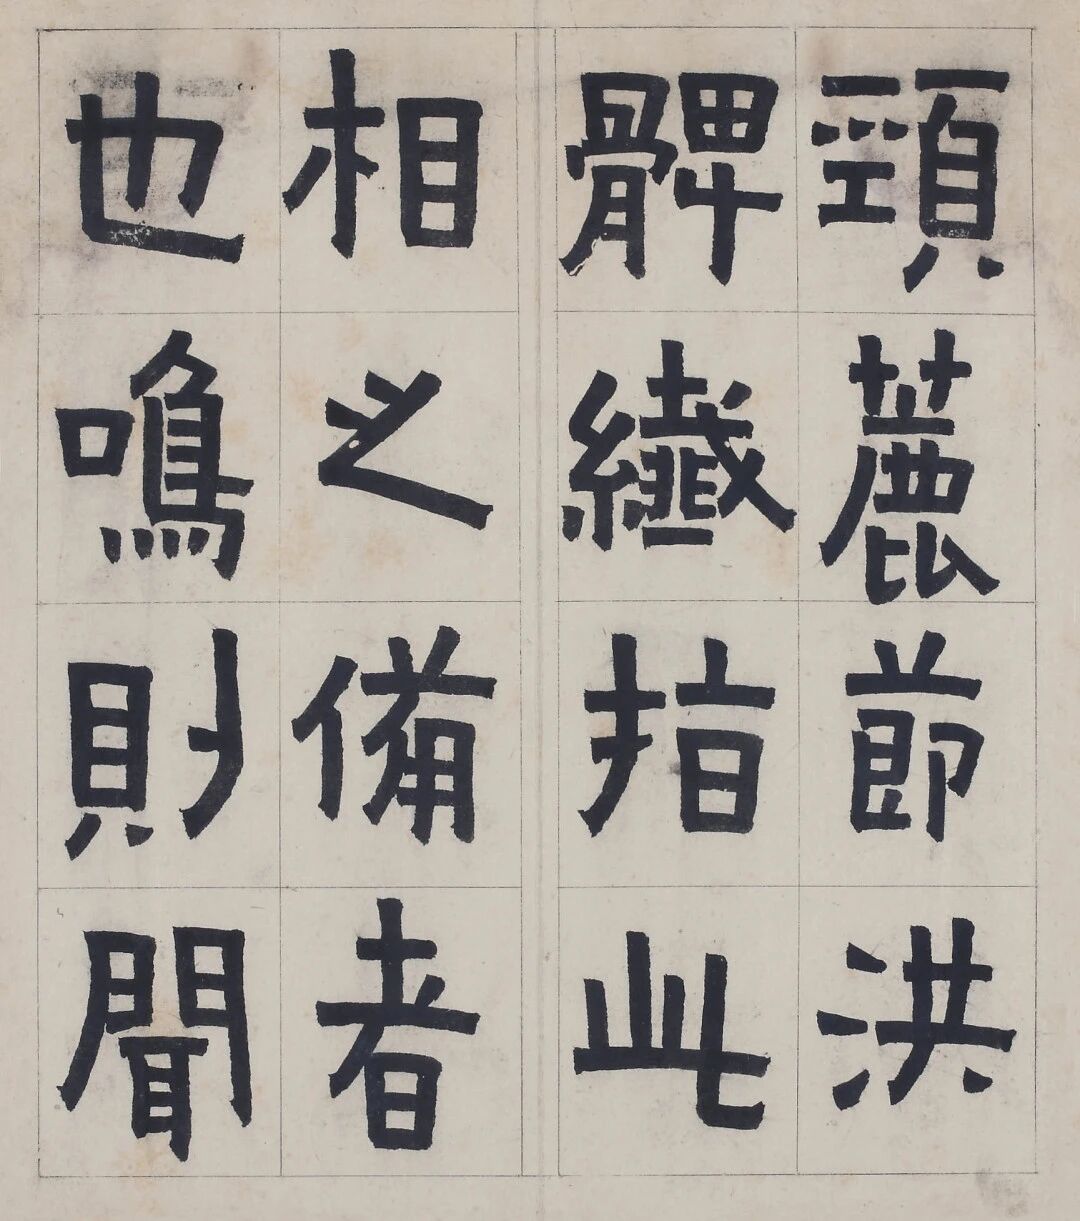 頸麤節洪
髀纖指此
相之備者
也鳴則聞